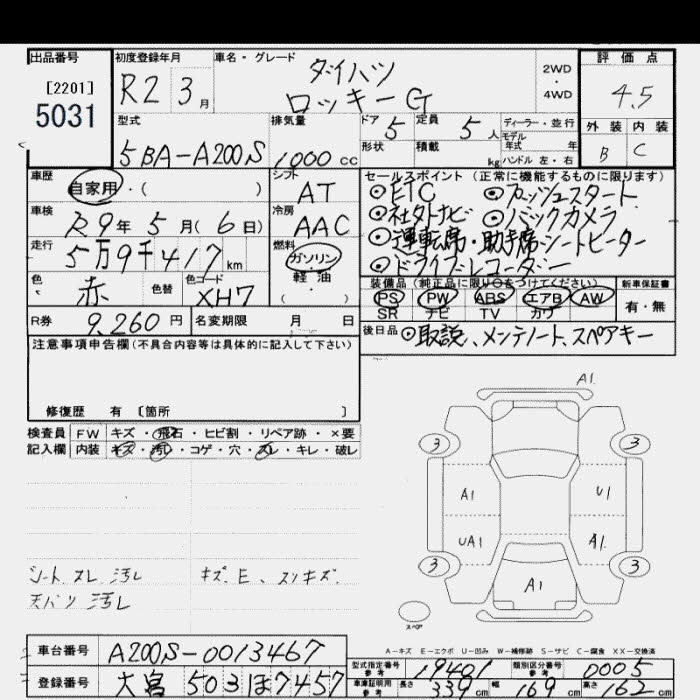 出品番号
[2201]
5031
初度登録年月
R2 3月
車名・グレード
ダイハツ
ロッキーG
2WD
・
4WD
評価点
4.5
外装 内装
B C
型式
5BA-A200S
排気量
1000 cc
ドア 5
定員 5人
形状
積載 kg
ディーラー・並行
モデル
年式 年
ハンドル 左・右
車歴
自家用・( )
シフト
AT
車検
R9年 5月(6日)
冷房
AAC
走行
5万9千417km
燃料
ガソリン
軽・油
( )
色
赤
色替
色コード
XH7
R券
9,260円
名変期限 月 日
セールスポイント (正常に機能するものに限ります)
◎ETC ◎プッシュスタート
◎社外ナビ ◎バックカメラ
◎運転席・助手席シートヒーター
◎ドライブレコーダー
装備品(純正品に限り○をつけてください)
PS PW ABS エアB AW
SR ナビ TV カワ
新車保証書
有・無
後日品
◎取説、メンテノート、スペアキー
注意事項申告欄(不具合内容等は具体的に記入して下さい)
修復歴 有 〔箇所 〕
検査員
記入欄
FW キズ・飛石・ヒビ割・リペア跡・×要
内装 キズ・汚れ・コゲ・穴・スレ・キレ・破レ
シート スレ 汚レ
天バリ 汚レ
キズ、E、スリキズ
A1
3 3
A1 U1
UA1 A1
3 3
A1
スペア
A-キズ E-エクボ U-凹み W-補修跡 S-サビ C-腐食 XX-交換済
車台番号
A200S-0013467
登録番号
大宮 503ほ7457
型式指定番号
参考
19401
類別区分番号
参考
0005
車庫証明用
参考
長さ 339cm
幅 169cm
高さ 162cm